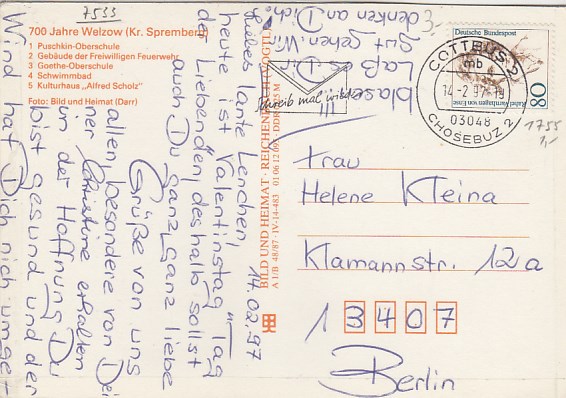 7533
700 Jahre Welzow (Kr. Spremberg)
1 Puschkin-Oberschule
2 Gebäude der Freiwilligen Feuerwehr
3 Goethe-Oberschule
4 Schwimmbad
5 Kulturhaus „Alfred Scholz"
Foto: Bild und Heimat (Darr)
BILD UND HEIMAT · REICHENBACH (VOGTL)
A 1/B 48/87 · IV-14-483 01 06 12 091
14.02.97
Liebes Tante Lenchen,
heute ist Valentinstag „Tag
der Liebenden", deshalb sollst
auch Du ganz ganz liebe
Grüße von uns
allen, besondere von Dei
ner Christine erhalten
in der Hoffnung Du
bist gesund und der
Wind hat Dich nich umge
blasen!!!
Laß es Dir
gut gehen. Wir
denken an Dich!
Schreib mal wieder
Deutsche Bundespost
80
COTTBUS 2
mb
14-2.97-18
03048
CHOSEBUZ 2
1755
1,-
Frau
Helene Kleina
Klamannstr. 12a
13407
Berlin